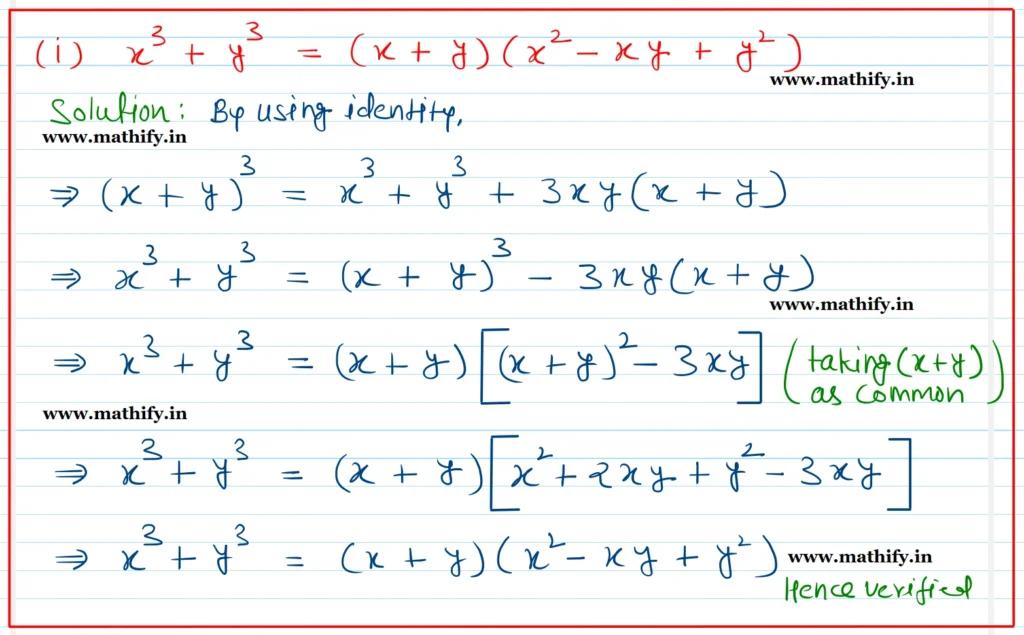 (i) x³ + y³ = (x + y)(x² - xy + y²)
www.mathify.in
Solution: By using identity,
www.mathify.in
⇒ (x + y)³ = x³ + y³ + 3xy(x + y)
⇒ x³ + y³ = (x + y)³ - 3xy(x + y)
www.mathify.in
⇒ x³ + y³ = (x + y)[(x + y)² - 3xy] (taking (x+y)
as common)
www.mathify.in
⇒ x³ + y³ = (x + y)[x² + 2xy + y² - 3xy]
⇒ x³ + y³ = (x + y)(x² - xy + y²) www.mathify.in
Hence verified